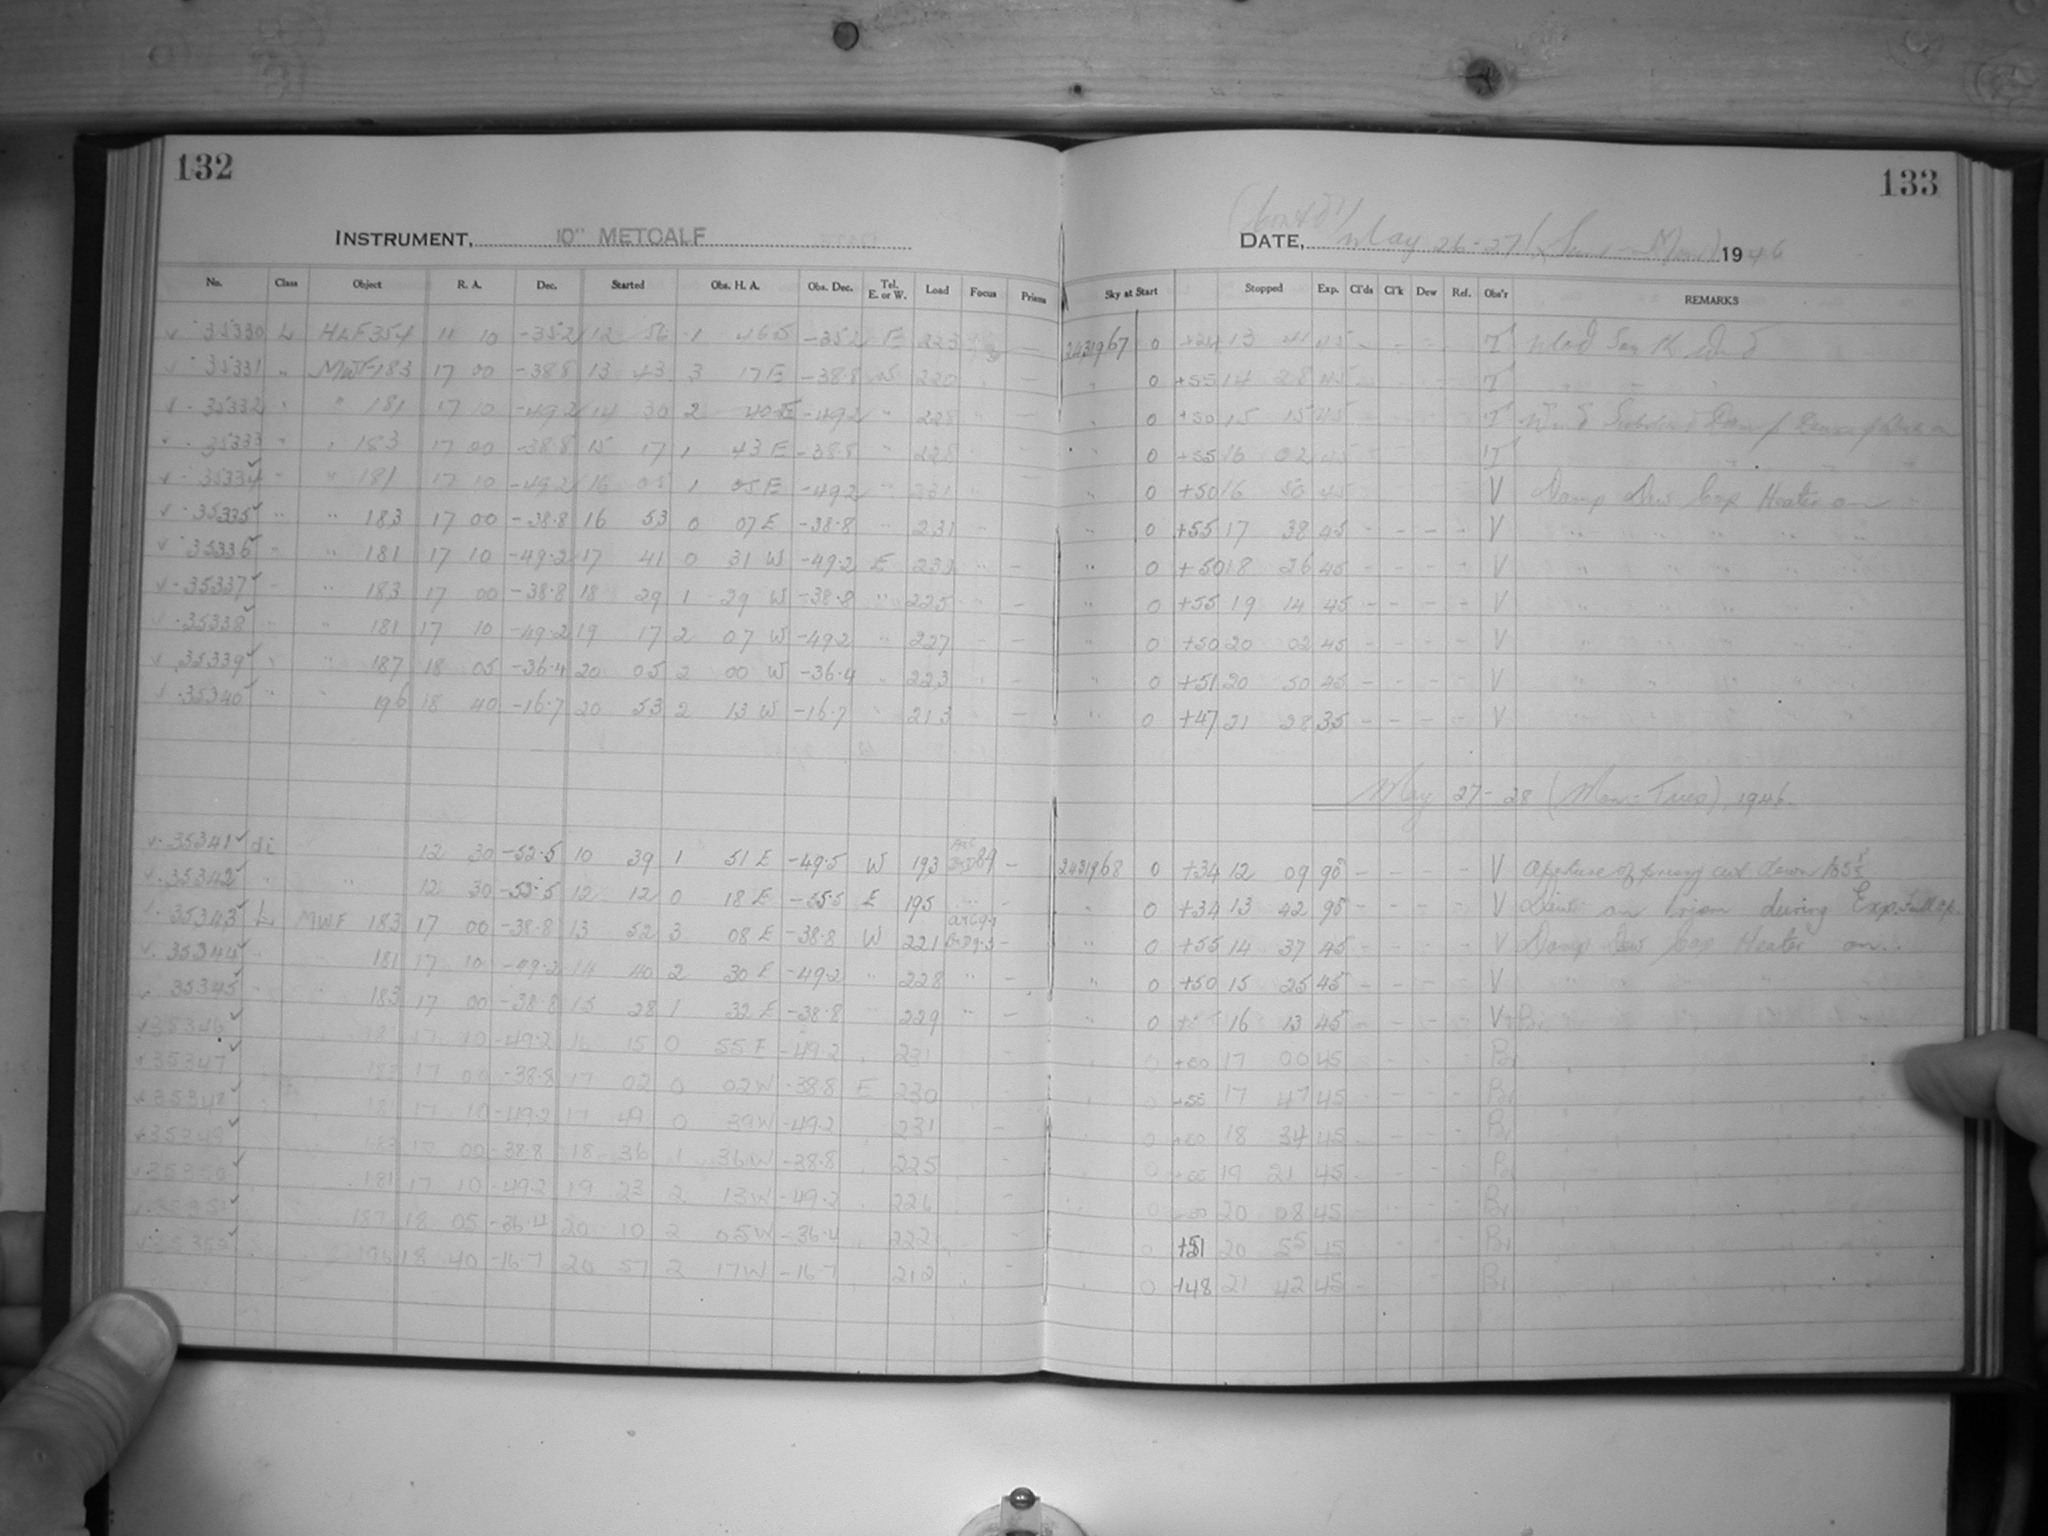 132
133
INSTRUMENT, 10" METCALF
DATE, May 26-27 (Sun-Mon) 1946
No. Class Object R. A. Dec. Started Obs. H. A. Obs. Dec. Tel. E. or W. Load Focus Prisms Sky at Start Stopped Exp. Cl'ds Cl'k Dew Ref. Obs'r REMARKS
35330 L 354 11 10 -35.2 12 56 1 46 -35.2 E 223 - 2431967 0 13 41 45 - - - - T
35331 " MWF 183 17 00 -38.8 13 43 3 17 E -38.8 W 220 - " 0 +55 14 28 45 - - - - T
35332 " " 181 17 10 -49.2 14 30 2 40 E -49.2 " 228 - " 0 +50 15 15 45 - - - - T
35333 " " 183 17 00 -38.8 15 17 1 43 E -38.8 " 228 - " 0 +55 16 02 45 - - - - T
35334 " " 181 17 10 -49.2 16 05 1 05 E -49.2 " 231 - " 0 +50 16 50 45 - - - - V Damp Dew Cap Heater on
35335 " " 183 17 00 -38.8 16 53 0 07 E -38.8 " 231 - " 0 +55 17 38 45 - - - - V " " " " "
35336 " " 181 17 10 -49.2 17 41 0 31 W -49.2 E 231 " - " 0 +50 18 26 45 - - - - V " " " " "
35337 " " 183 17 00 -38.8 18 29 1 29 W -38.8 " 225 - " 0 +55 19 14 45 - - - - V " " " " "
35338 " " 181 17 10 -49.2 19 17 2 07 W -49.2 " 227 - " 0 +50 20 02 45 - - - - V " " " " "
35339 " " 187 18 05 -36.4 20 05 2 00 W -36.4 " 223 " - " 0 +51 20 50 45 - - - - V " " " " "
35340 " " 196 18 40 -16.7 20 53 2 13 W -16.7 " 213 - " 0 +47 21 28 35 - - - - V " " " " "
May 27-28 (Mon-Tues), 1946.
35341 di 12 30 -52.5 10 39 1 51 E -49.5 W 193 - 2431968 0 +34 12 09 90 - - - - V Aperture of prism cut down
35342 " " 12 30 12 12 0 18 E -55.5 E 195 " 0 +34 13 42 90 - - - - V on prism during Exp. Full ap.
35343 L MWF 183 17 00 -38.8 13 52 3 08 E -38.8 W 221 - " 0 +55 14 37 45 - - - - V Damp Dew Cap Heater on.
35344 " " 181 17 10 -49.2 14 40 2 30 E -49.2 " 228 " - " 0 +50 15 25 45 - - - - V " " " " "
35345 " " 183 17 00 -38.8 15 28 1 32 E -38.8 " 229 " - " 0 16 13 45 - - - - V Br " " "
35346 181 17 10 -49.2 16 15 0 55 E -49.2 231 - 0 +50 17 00 45 - - - - Br
35347 183 17 00 -38.8 17 02 0 02 W -38.8 E 230 0 +55 17 47 45 - - - - Br
35348 181 17 10 -49.2 17 49 0 39 W -49.2 231 - 0 +50 18 34 45 - - - - Br
35349 183 17 00 -38.8 18 36 1 36 W -38.8 225 - 0 +55 19 21 45 - - - - Br
35350 181 17 10 -49.2 19 23 2 13 W -49.2 226 - 0 +50 20 08 45 - - - - Br
35351 187 18 05 -36.4 20 10 2 05 W -36.4 222 - 0 +51 20 55 45 - - - - Br
35352 196 18 40 -16.7 20 57 2 17 W -16.7 212 - 0 +48 21 42 45 - - - - Br